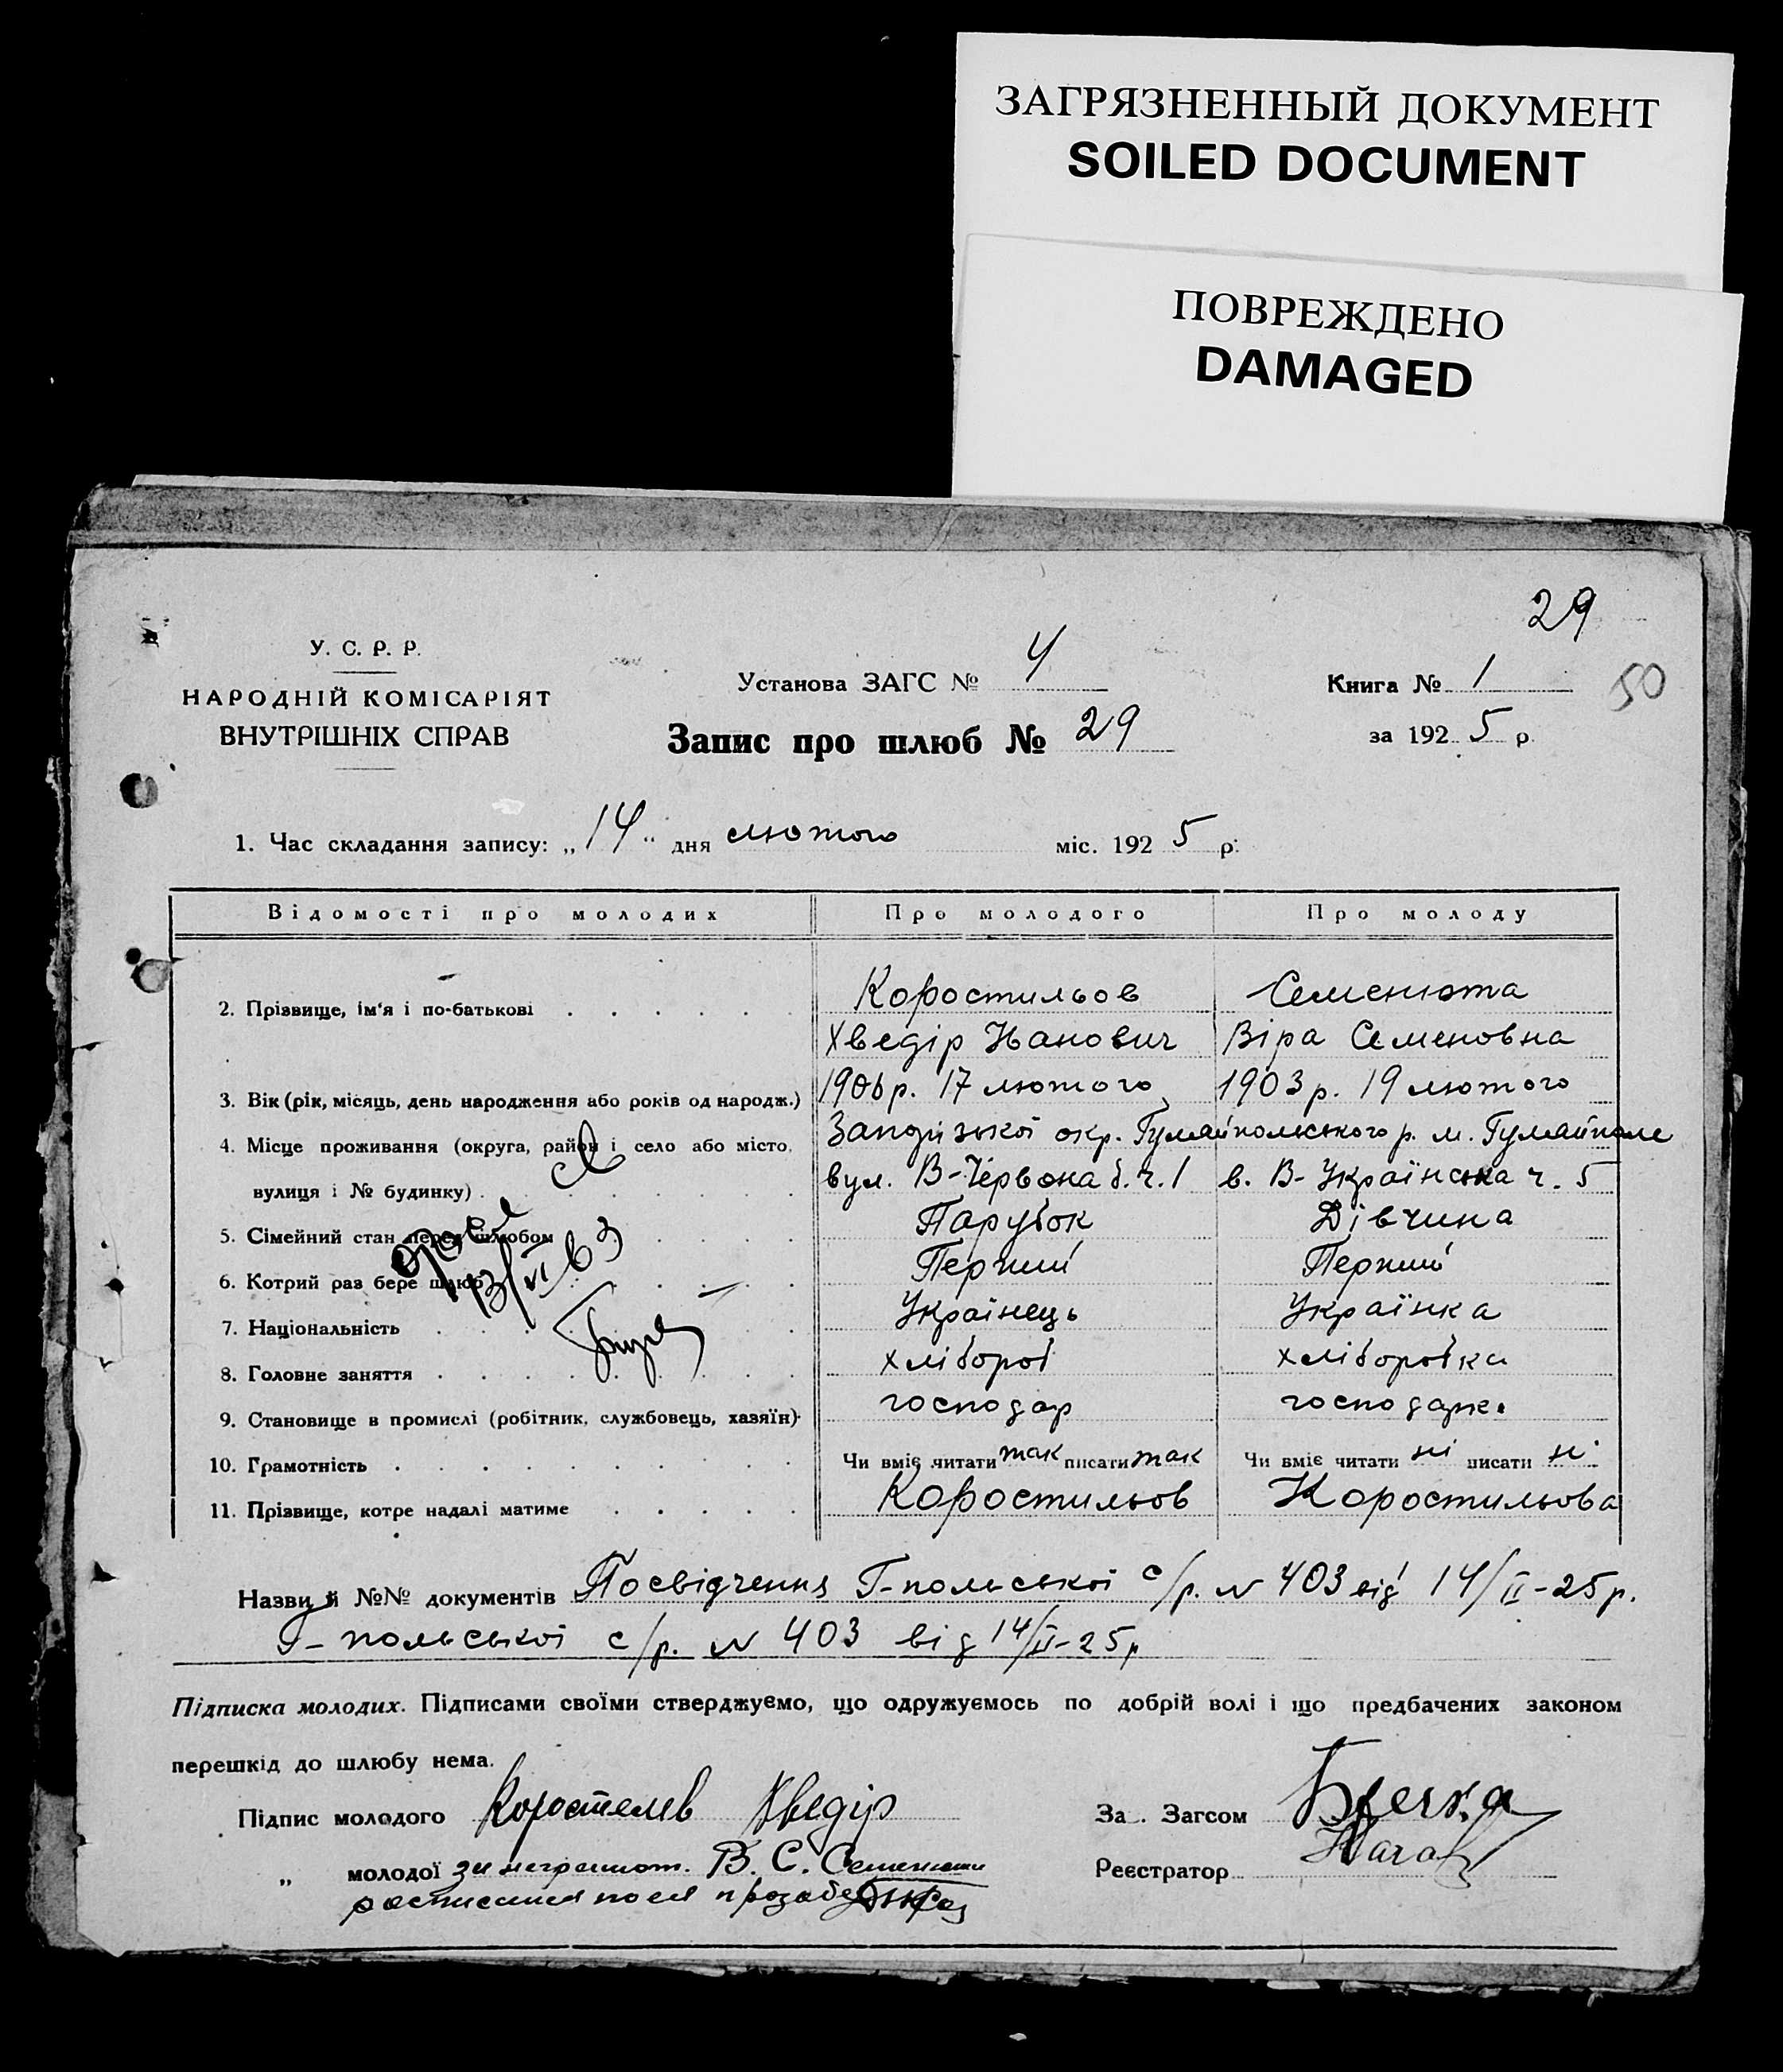 ЗАГРЯЗНЕННЫЙ ДОКУМЕНТ
SOILED DOCUMENT
ПОВРЕЖДЕНО
DAMAGED
29
50
У. С. Р. Р.
НАРОДНІЙ КОМІСАРІЯТ
ВНУТРІШНІХ СПРАВ
Установа ЗАГС № 4
Запис про шлюб № 29
Книга № 1
за 1925 р.
1. Час складання запису: „14" дня лютого міс. 1925 р.
Відомості про молодих Про молодого Про молоду
2. Прізвище, ім'я і по-батькові Коростильов Семенюта
Хведір Іванович Віра Семеновна
3. Вік (рік, місяць, день народження або років од народж.) 1906 р. 17 лютого 1903 р. 19 лютого
4. Місце проживання (округа, район і село або місто, Запорізької окр. Гуляйпольського р. м. Гуляйполе
вулиця і № будинку) вул. В-Червона б. ч. 1 в. В-Українська ч. 5
5. Сімейний стан перед шлюбом Парубок Дівчина
6. Котрий раз бере шлюб Перший Перший
13/VI 63
7. Національність Українець Українка
8. Головне заняття хлібороб хліборобка
9. Становище в промислі (робітник, службовець, хазяїн) господар господарк.
10. Грамотність Чи вміє читати так писати так Чи вміє читати ні писати ні
11. Прізвище, котре надалі матиме Коростильов Коростильова
Назви й №№ документів Посвідчення Г-польської с/р. N 403 від 14/II-25 р.
Г-польської с/р. N 403 від 14/II-25 р
Підписка молодих. Підписами своїми стверджуємо, що одружуємось по добрій волі і що предбачених законом
перешкід до шлюбу нема.
Підпис молодого Коростелев Хведір
За . Загсом
„ молодої за неграмот. В. С. Семенюти
Реєстратор